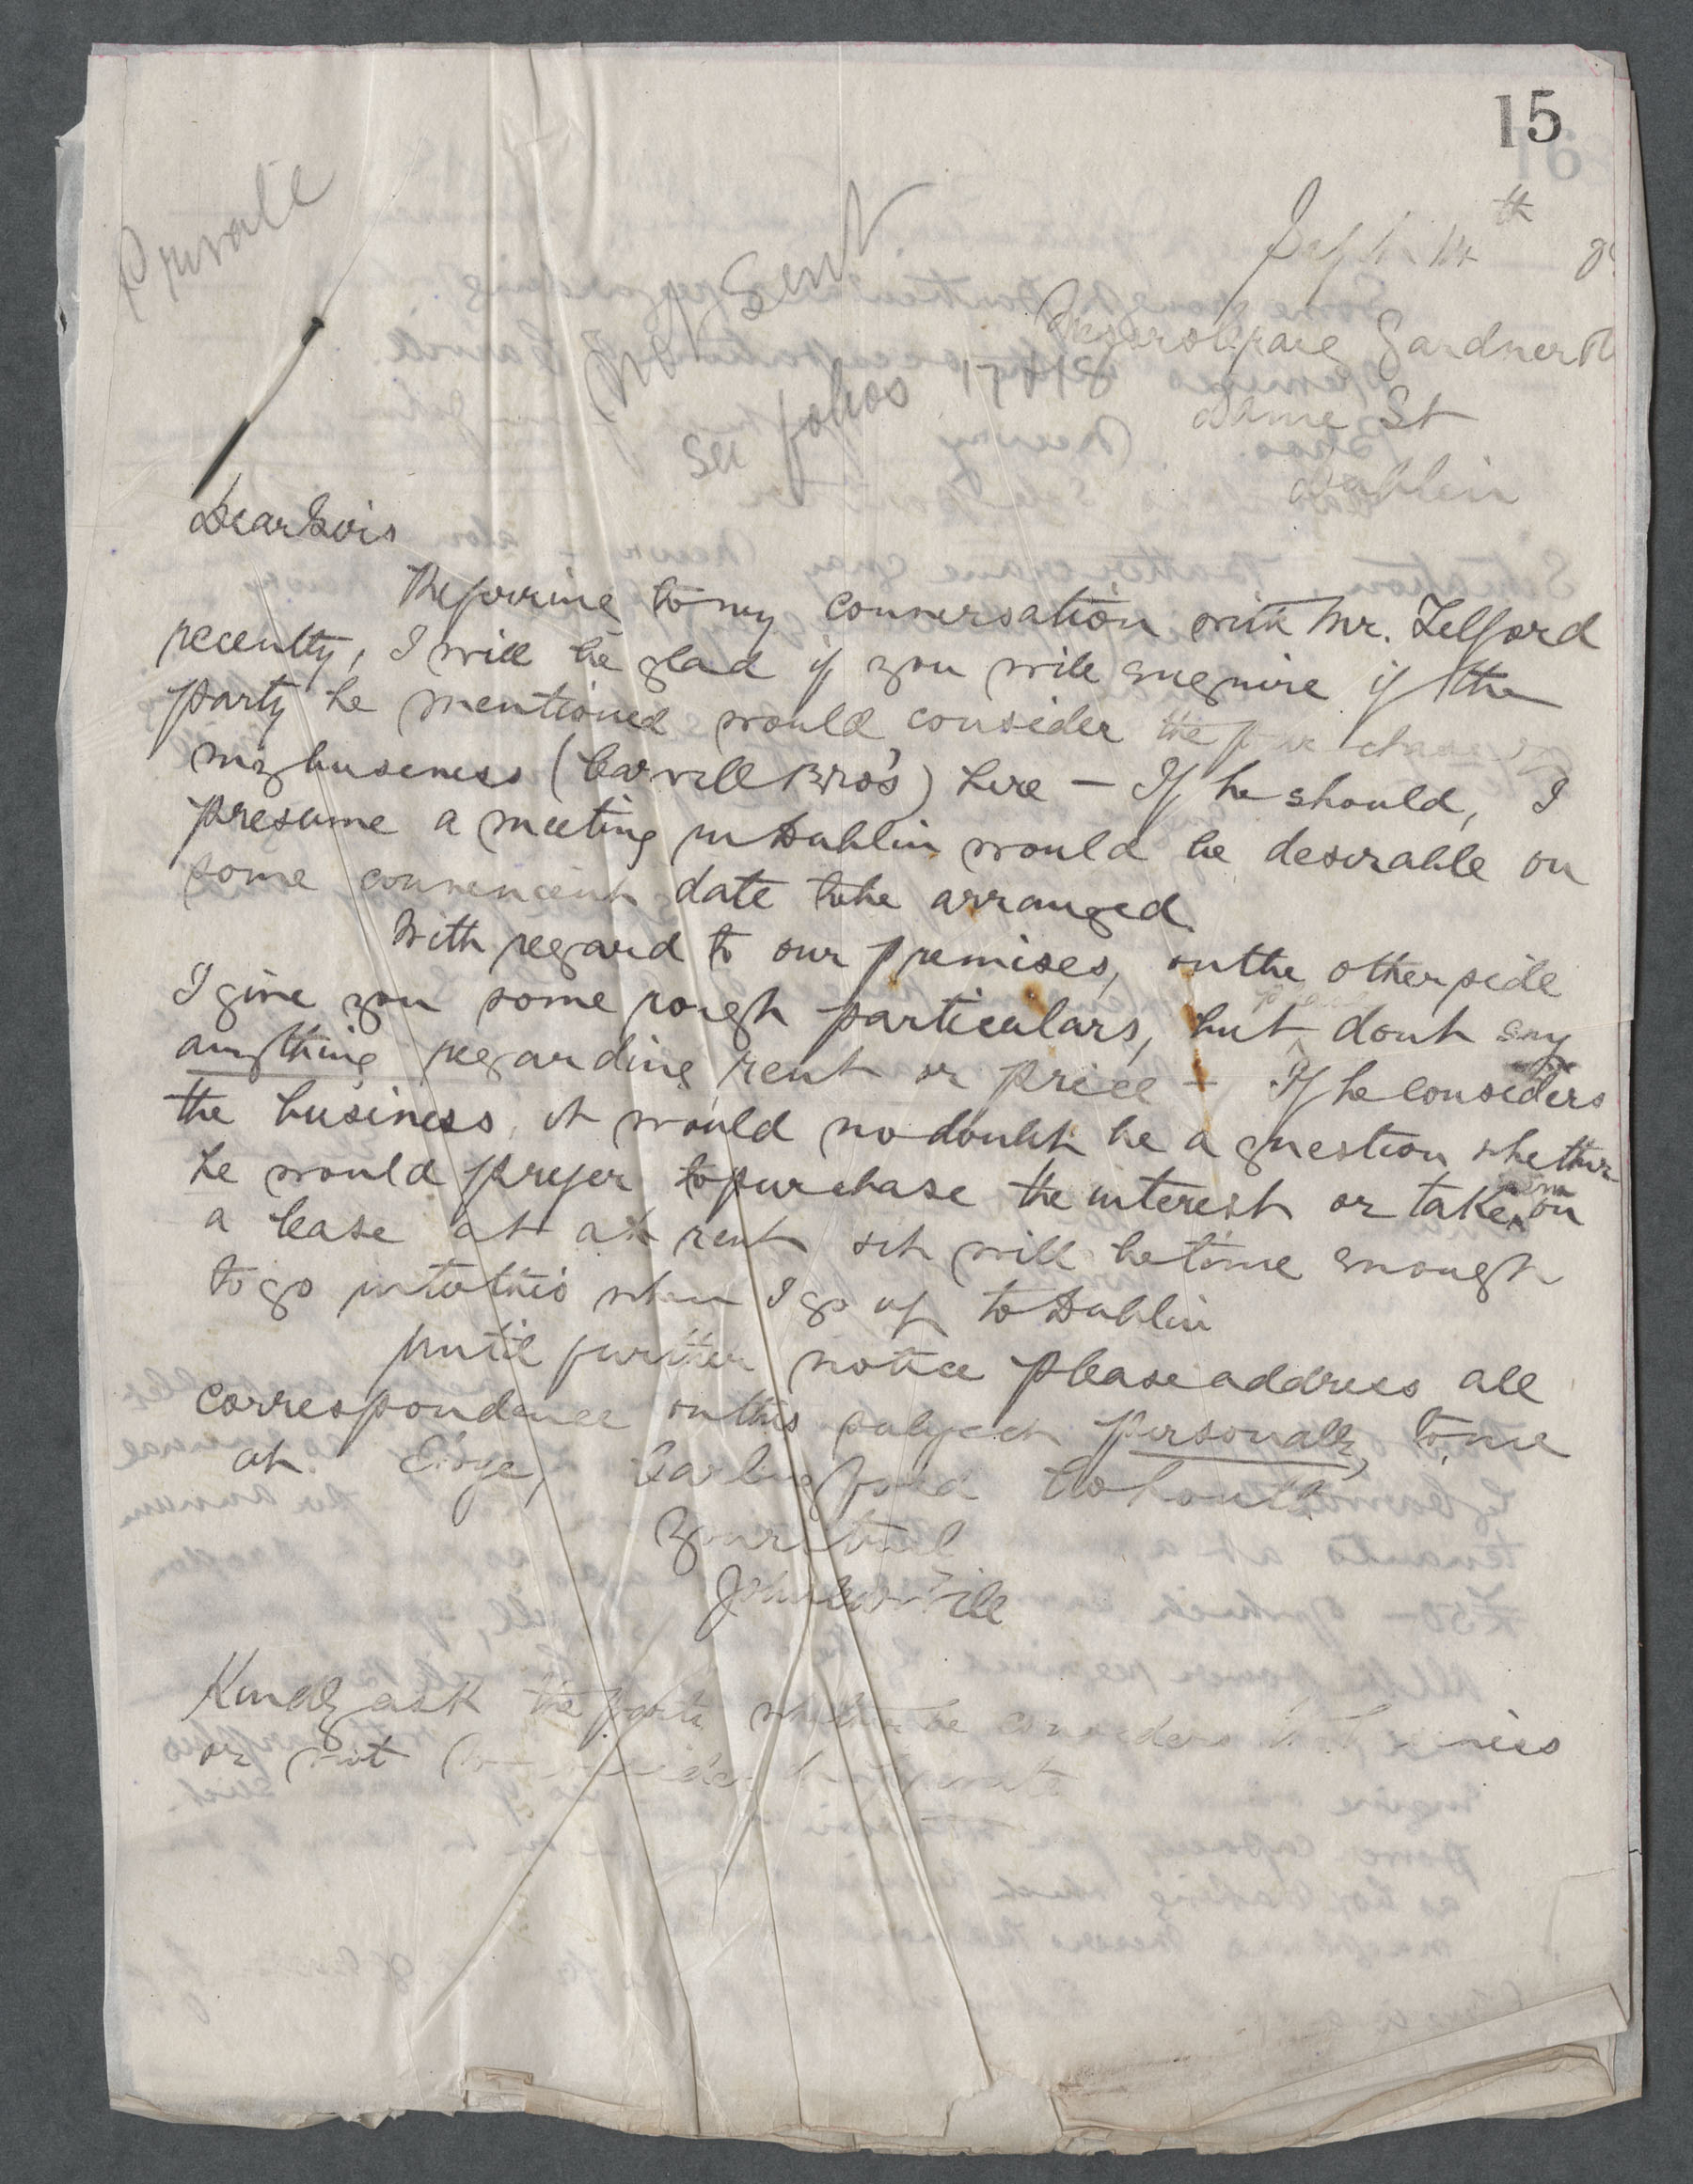 15
Private
Sept 14th
Not Sent
Messrs Craig Gardner
see folios 17 & 18
Dame St
Dublin
Dear Sirs
Referring to my conversation with Mr. Telford
recently, I will be glad if you will enquire if the
party he mentioned would consider the purchase of
my business (Carvill Bro's) here — If he should, I
presume a meeting in Dublin would be desirable on
some convenient date to be arranged.
With regard to our premises, on the other side
I give you some rough particulars, but please dont say
anything regarding rent or price — If he considers
the business, it would no doubt be a question whether
he would prefer to purchase the interest or take em on
a lease at a rent it will be time enough
to go into this when I go up to Dublin
Until further notice please address all
correspondence on this subject personally to me
at Carlingford Co Louth
Yours truly
John Carvill
Kindly ask the party whether he considers the business
or not